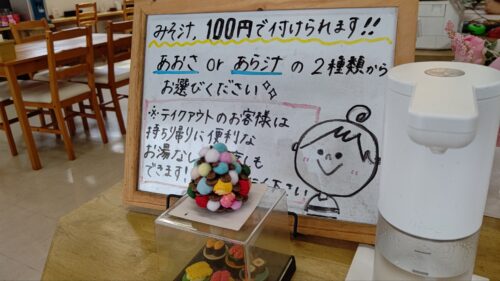 みそ汁、100円で付けられます!!
あおさ or あら汁 の 2種類から
お選びください
※テイクアウトのお客様は
持ち帰りに便利な
お湯なし
も
できます!
下さい